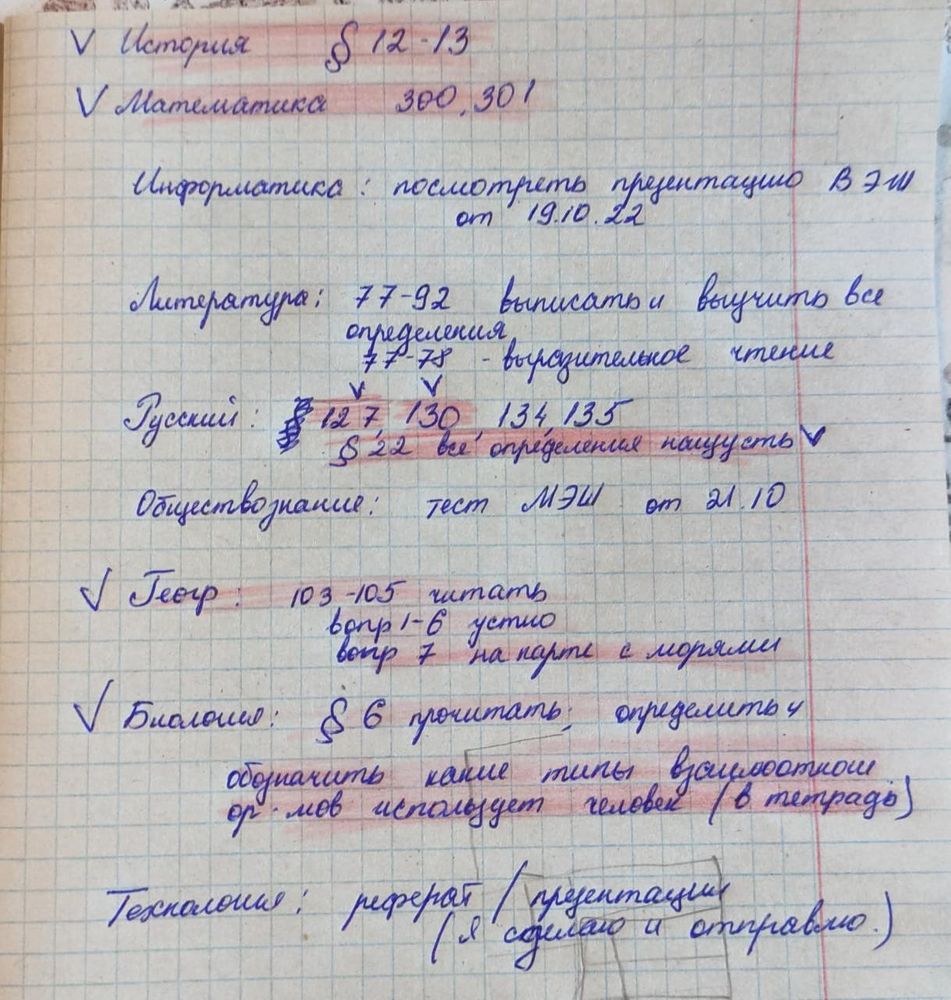 V История § 12-13
V Математика 300, 301
Информатика: посмотреть презентацию в ЭШ
от 19.10.22
Литература: 77-92 выписать и выучить все
определения
77-78 - выразительное чтение
Русский: § 127, 130, 134, 135
§ 22 все определения наизусть V
Обществознание: тест МЭШ от 21.10
V Геогр: 103-105 читать
вопр 1-6 устно
вопр 7 на карте с морями
V Биология: § 6 прочитать; определить и
обозначить какие типы взаимоотнош
ор-мов использует человек (в тетрадь)
Технология: реферат / презентации
(я сделаю и отправлю.)